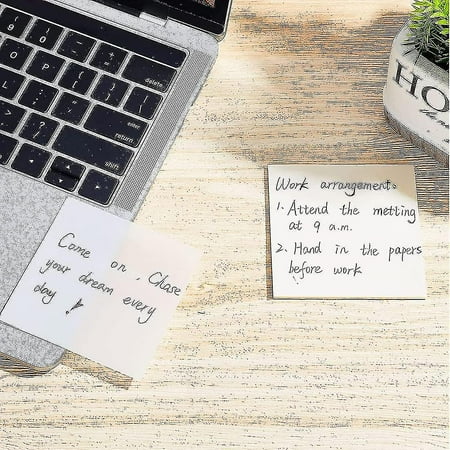 delete
enter
return
shift
HO
Come on, Chase
your dream every
day !
Work arrangement:
1. Attend the metting
at 9 a.m.
2. Hand in the papers
before work